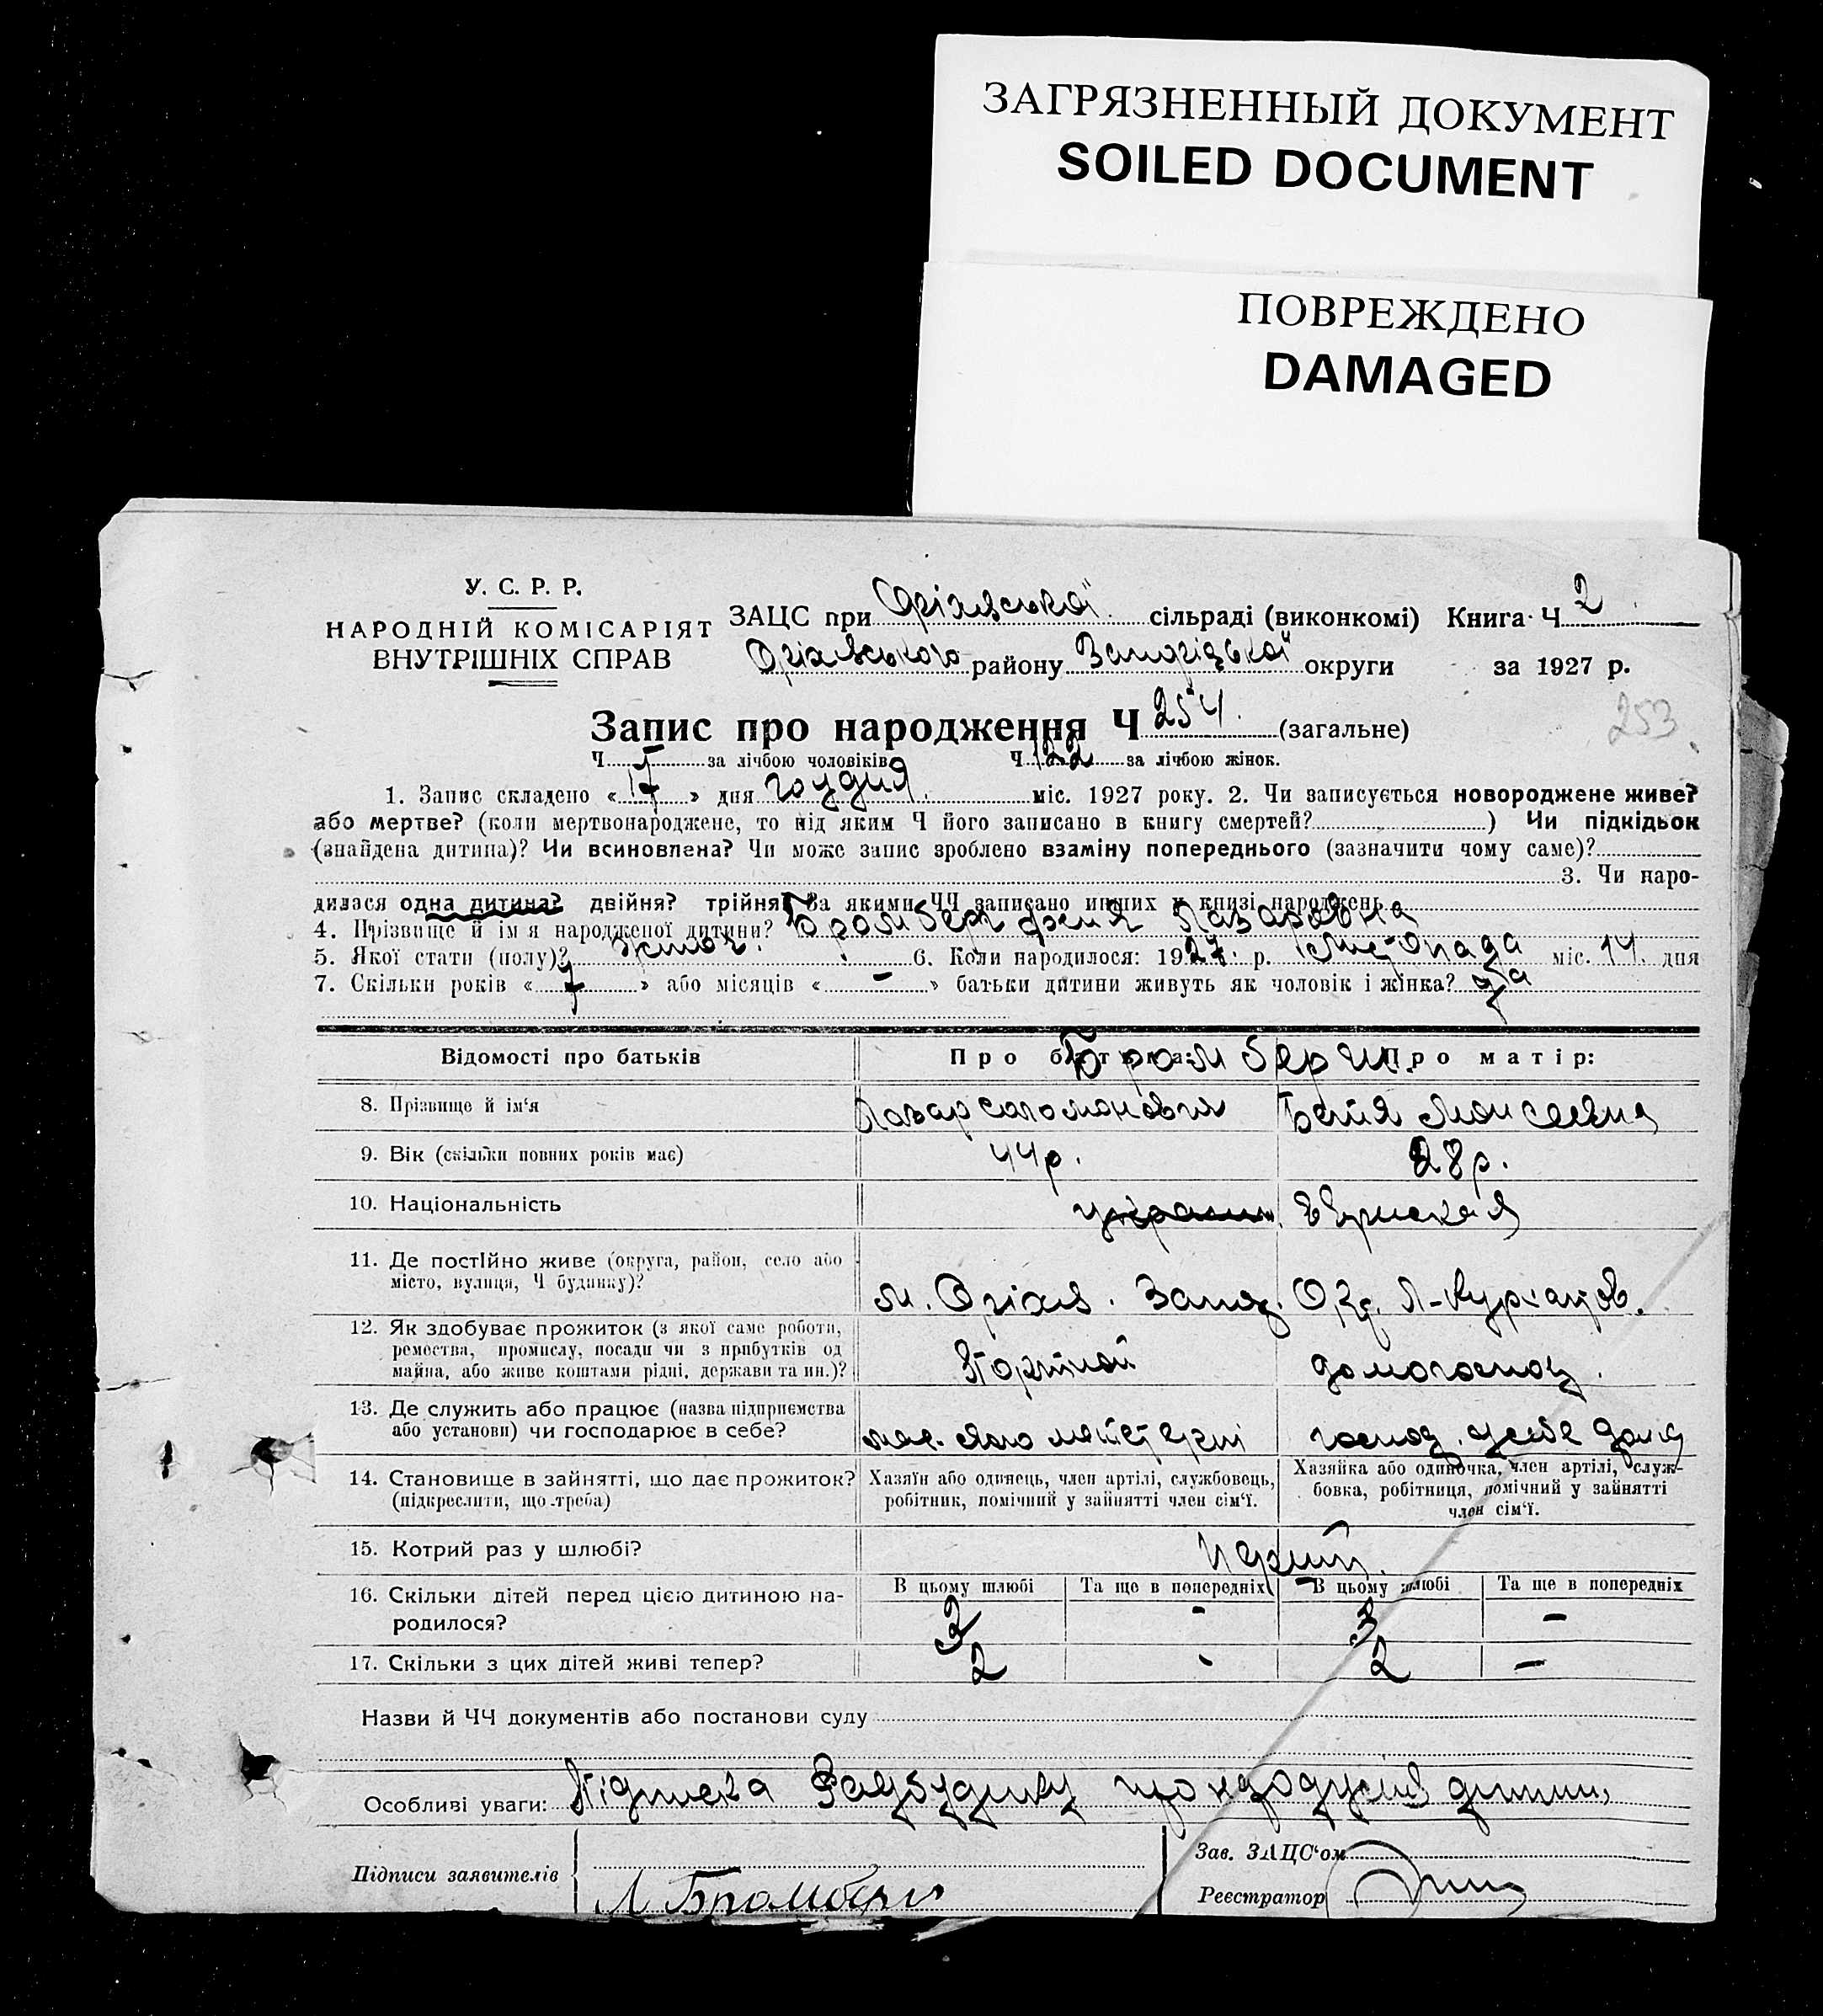 ЗАГРЯЗНЕННЫЙ ДОКУМЕНТ
SOILED DOCUMENT
ПОВРЕЖДЕНО
DAMAGED
У. С. Р. Р.
НАРОДНІЙ КОМІСАРІЯТ
ВНУТРІШНІХ СПРАВ
ЗАЦС при Оріхівської сільраді (виконкомі) Книга Ч 2
Оріхівського району Запорізької округи за 1927 р.
Запис про народження Ч 254. (загальне)
253
Ч за лічбою чоловіків Ч 122 за лічбою жінок.
1. Запис складено « 17 » дня грудня міс. 1927 року. 2. Чи записується новороджене живе?
або мертве? (коли мертвонароджене, то під яким Ч його записано в книгу смертей? ) Чи підкідьок
(знайдена дитина)? Чи всиновлена? Чи може запис зроблено взаміну попереднього (зазначити чому саме)?
3. Чи наро-
дилася одна дитина? двійня? трійня? За якими ЧЧ записано инших у книзі народжень
4. Прізвище й ім'я народженої дитини? Бромберг Феня Лазарівна
5. Якої стати (полу)? жіноч. 6. Коли народилося: 1927 р. листопада міс. 14 дня
7. Скільки років « 7 » або місяців « – » батьки дитини живуть як чоловік і жінка? да
Відомості про батьків Про батька: Про матір:
Бромберги
8. Прізвище й ім'я Лазар Соломонович Бетя Моисеевна
9. Вік (скільки повних років має) 44 р. 28 р.
10. Національність Еврейская
11. Де постійно живе (округа, район, село або
місто, вулиця, Ч будинку)?
м. Оріхів. Запор. Окр.
12. Як здобуває прожиток (з якої саме роботи,
ремества, промислу, посади чи з прибутків од
майна, або живе коштами рідні, держави та ин.)?
Портной домогоспод.
13. Де служить або працює (назва підприємства
або установи) чи господарює в себе?
14. Становище в зайнятті, що дає прожиток?
(підкреслити, що треба)
Хазяїн або одинець, член артілі, службовець,
робітник, помічний у зайнятті член сім'ї.
Хазяйка або одиночка, член артілі, служ-
бовка, робітниця, помічний у зайнятті
член сім'ї.
15. Котрий раз у шлюбі? Перший
В цьому шлюбі Та ще в попередніх В цьому шлюбі Та ще в попередніх
16. Скільки дітей перед цією дитиною на-
родилося?
3 - 3 -
17. Скільки з цих дітей живі тепер? 2 - 2 -
Назви й ЧЧ документів або постанови суду
Особливі уваги: Підписка
Підписи заявителів
Л Бромберг
Зав. ЗАЦС'ом
Реєстратор